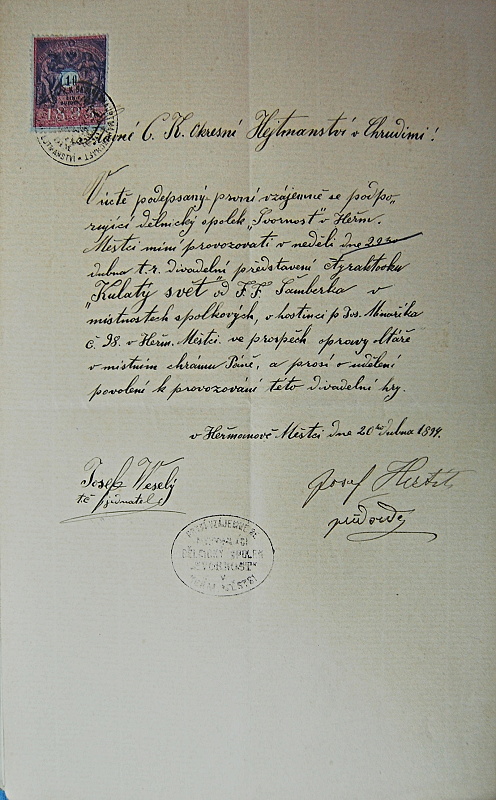 Slavné C. K. Okresné Hejtmanství v Chrudimi!
V úctě podepsaný první vzájemně se podpo-
rující dělnický spolek „Svornost" v Heřm.
Městci míní provozovati v neděli dne
dubna t.r. divadelní představení čtyraktovku
„Kulatý svět" od F. F. Šamberka v
místnostech spolkových, v hostinci p. Jos. Minaříka
č. 98. v Heřm. Městci ve prospěch opravy oltáře
v místním chrámu Páně, a prosí o udělení
povolení k provozování této divadelní hry.
v Heřmanově Městci dne 20ho dubna 1899.
Josef Veselý
t.č. jednatel
Josef
předseda
PRVNÍ VZÁJEMNĚ SE
PODPORUJÍCÍ
DĚLNICKÝ SPOLEK
„SVORNOST"
V
HEŘM. MĚSTCI